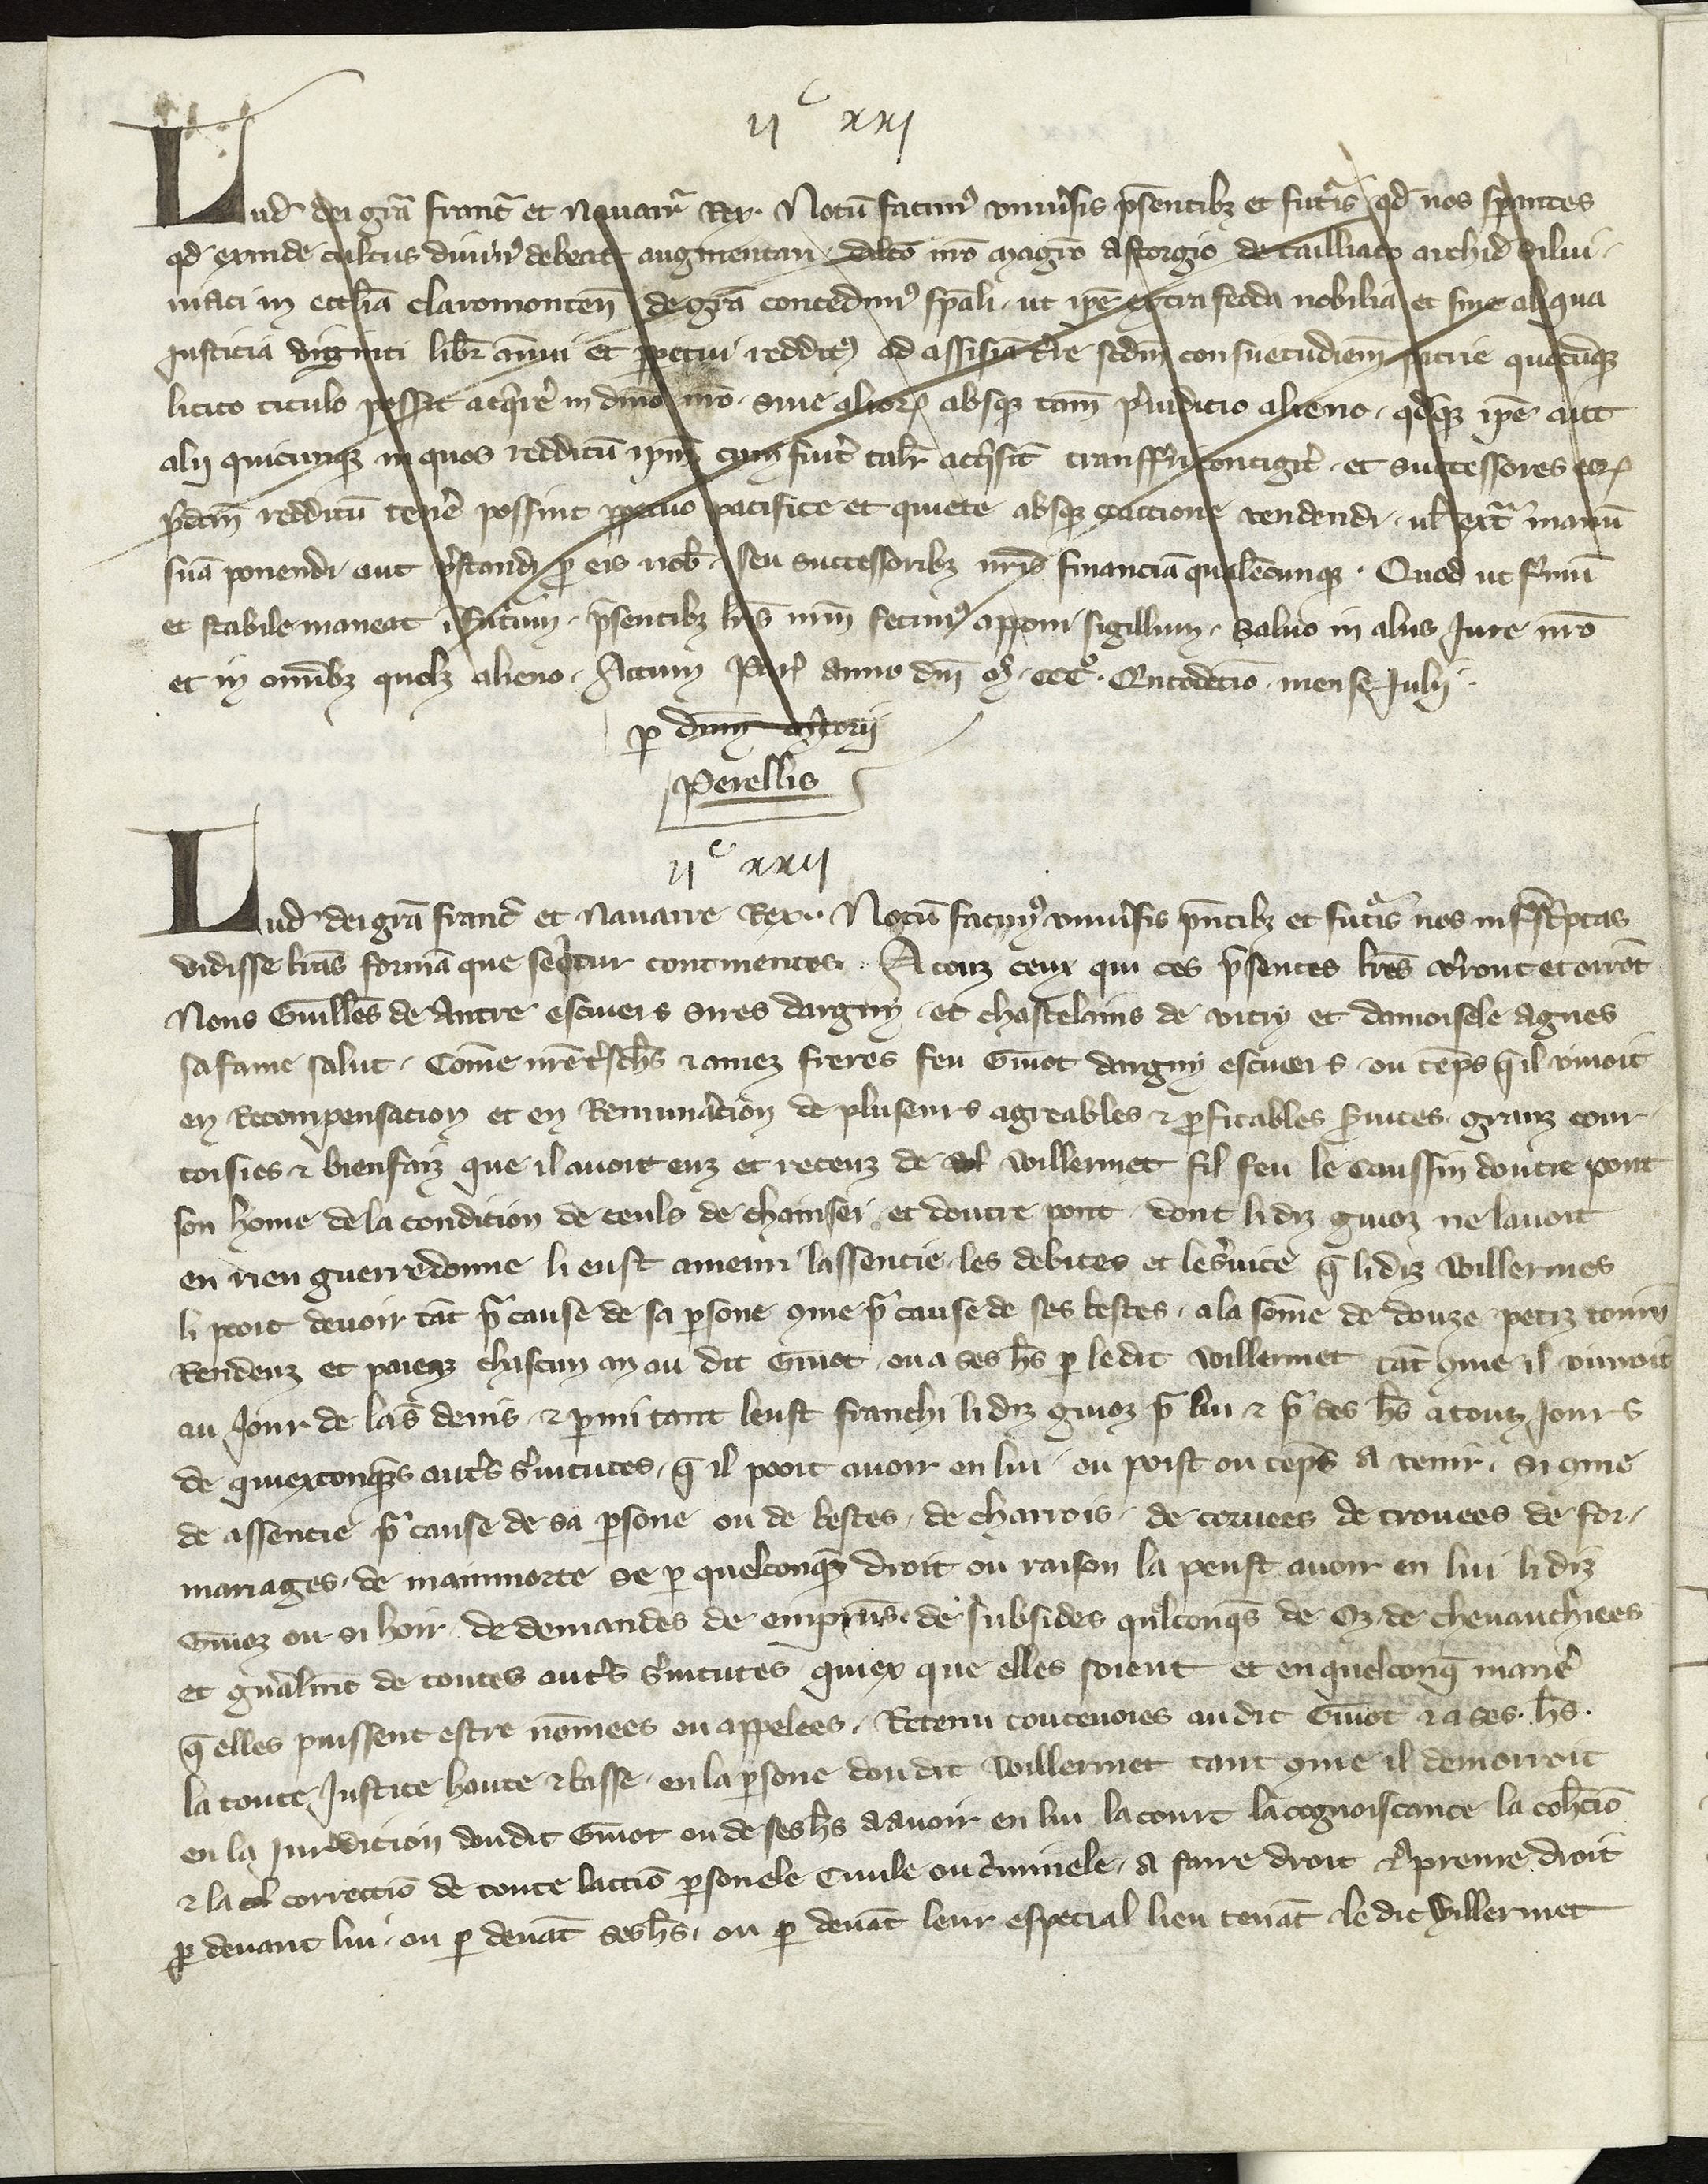 IIc XXI
Lud dei gra franc et Navarr Rex. Notu facim9 univsis psentibz et futis qd nos sperantes
qd exinde cultus divin9 debeat augmentari dilco nro magro Astorgio de tailliaco archid
niaci in eccliam claromonten de gra concedim9 spali, ut ipe extra feoda nobilia et sine aliqua
Justicia viginti libr annui et ppetui reddit9 ad assisia tre scdm consuetudiem patrie quocuq3
licito titulo possit acqrere in dmo nro, sive alior absq3 tam piudicio alieno, qdq3 ipe aut
alij quicunq3 in quos redditu ipm cum fuit talr acqsit transfri contigit, et successores eor
pdcm redditu tenere possint ppetuo pacifice et quiete absq3 coaccione vendendi, ul extra manu
sua ponendi aut pstandi p eis nob, seu successoribz nris financia qualecunq3. Quod ut firmu
et stabile maneat i futurum, psentibz lris nrm fecim9 apponi sigillum, Salvo in aliis Jure nro
et in omibz quolz alieno. Actum Par anno dni M. CCC° Qntodecio, mense Julij.
p dnm
Perellis
IIc XXII
Lud dei gra franc et Navarre Rex. Notu facim9 univsis pntibz et futis nos infscptas
vidisse lras forma que sequitur continentes. A touz ceux qui ces psentes lres vrront et orrot
Nous Guillés de Antre escuiers sires dargny, et chastelains de vitry et damoisele Agnes
sa fame salut. Come nre trschs & amez freres feu Guiot dargny escuiers, ou teps q il vivoit
en Recompensacion et en Remunacion de pluseurs agreables & pfitables svices, granz cour-
toisies & bienfaiz que il avoit euz et receuz de Willermet fil feu le Caussin doutre pont
son home de la condicion de ceuls de chamsei, et doutre pont, dont li diz guioz ne lavoit
en rien guerredonne li eust amenri lassentie, les debites et le svice q li diz Willermes
li pooit devoir tat pr cause de sa psone 9me pr cause de ses bestes, a la some de douze petiz tourn
Rendenz et paienz chascun an au dit Guiot, ou a ses hs p le dit Willermet tat 9me il vivroit
au Jour de la s denis, & pmi tant leust franchi li diz guioz pr lui & pr ses hs a touz Jours
de quiexconques autrs svitutes, q il pooit avoir en lui, ou poist ou teps a venir, si 9me
de assentie pr cause de sa psone ou de bestes, de charrois, de corvees de trouees de for-
mariages, de mainmorte se p quelconq3 droit ou raison la peust avoir en lui li diz
Guioz ou si hoir, de demandes de empruns, de subsides qulconqs de Oz de chevauchiees
et gnalmt de toutes autrs svitutes quiex que elles soient et en quelconq manie
q elles puissent estre nomees ou appelees, Retenu toutevoies au dit Guiot & a ses hs.
la toute Justice haute & basse, en la psone dou dit Willermet tant 9me il demorroit
en la Juridicion dou dit Guiot ou de ses hs a avoir en lui la court la cognoiscance la cohcio
& la correctio de toute lactio psonele Civile ou criminele, a faire droit & a penre droit
p devant lui, ou p devat ses hs, ou p devat leur especial lieu tenat, le dit Willermet